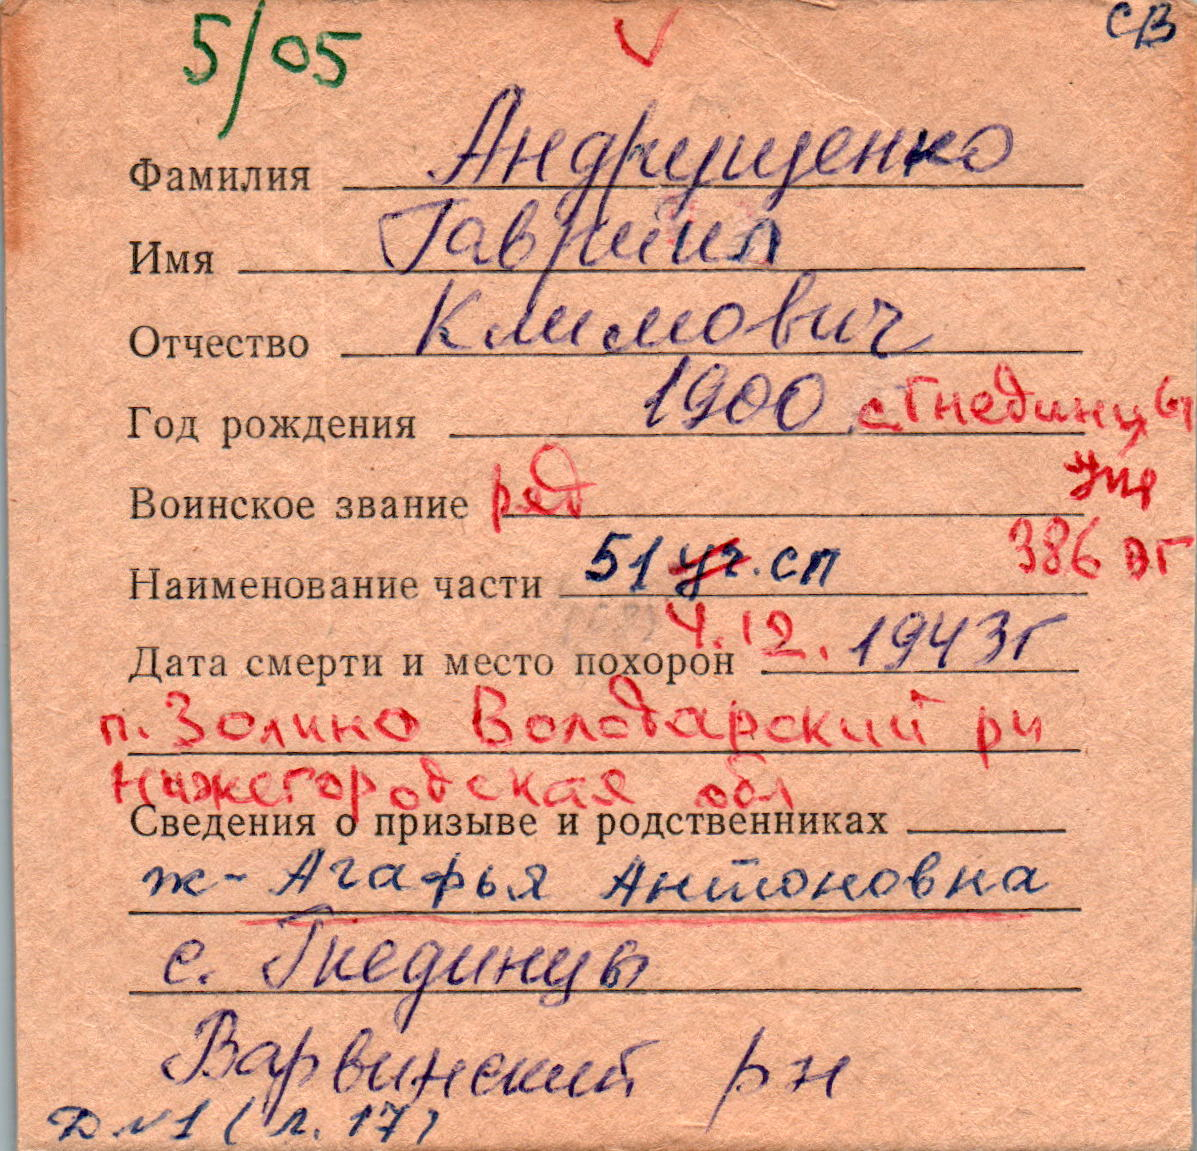 5/05
св
Фамилия Андрущенко
Имя Гавриил
Отчество Климович
Год рождения 1900 с Гнединцы
Воинское звание ряд
386 ВГ
Наименование части 51 уч. сп
Дата смерти и место похорон 4.12. 1943г
п. Золино Володарский рн
Нижегородская обл
Сведения о призыве и родственниках
ж- Агафья Антоновна
с. Гнединцы
Варвинский рн
Д №1 (л. 17)